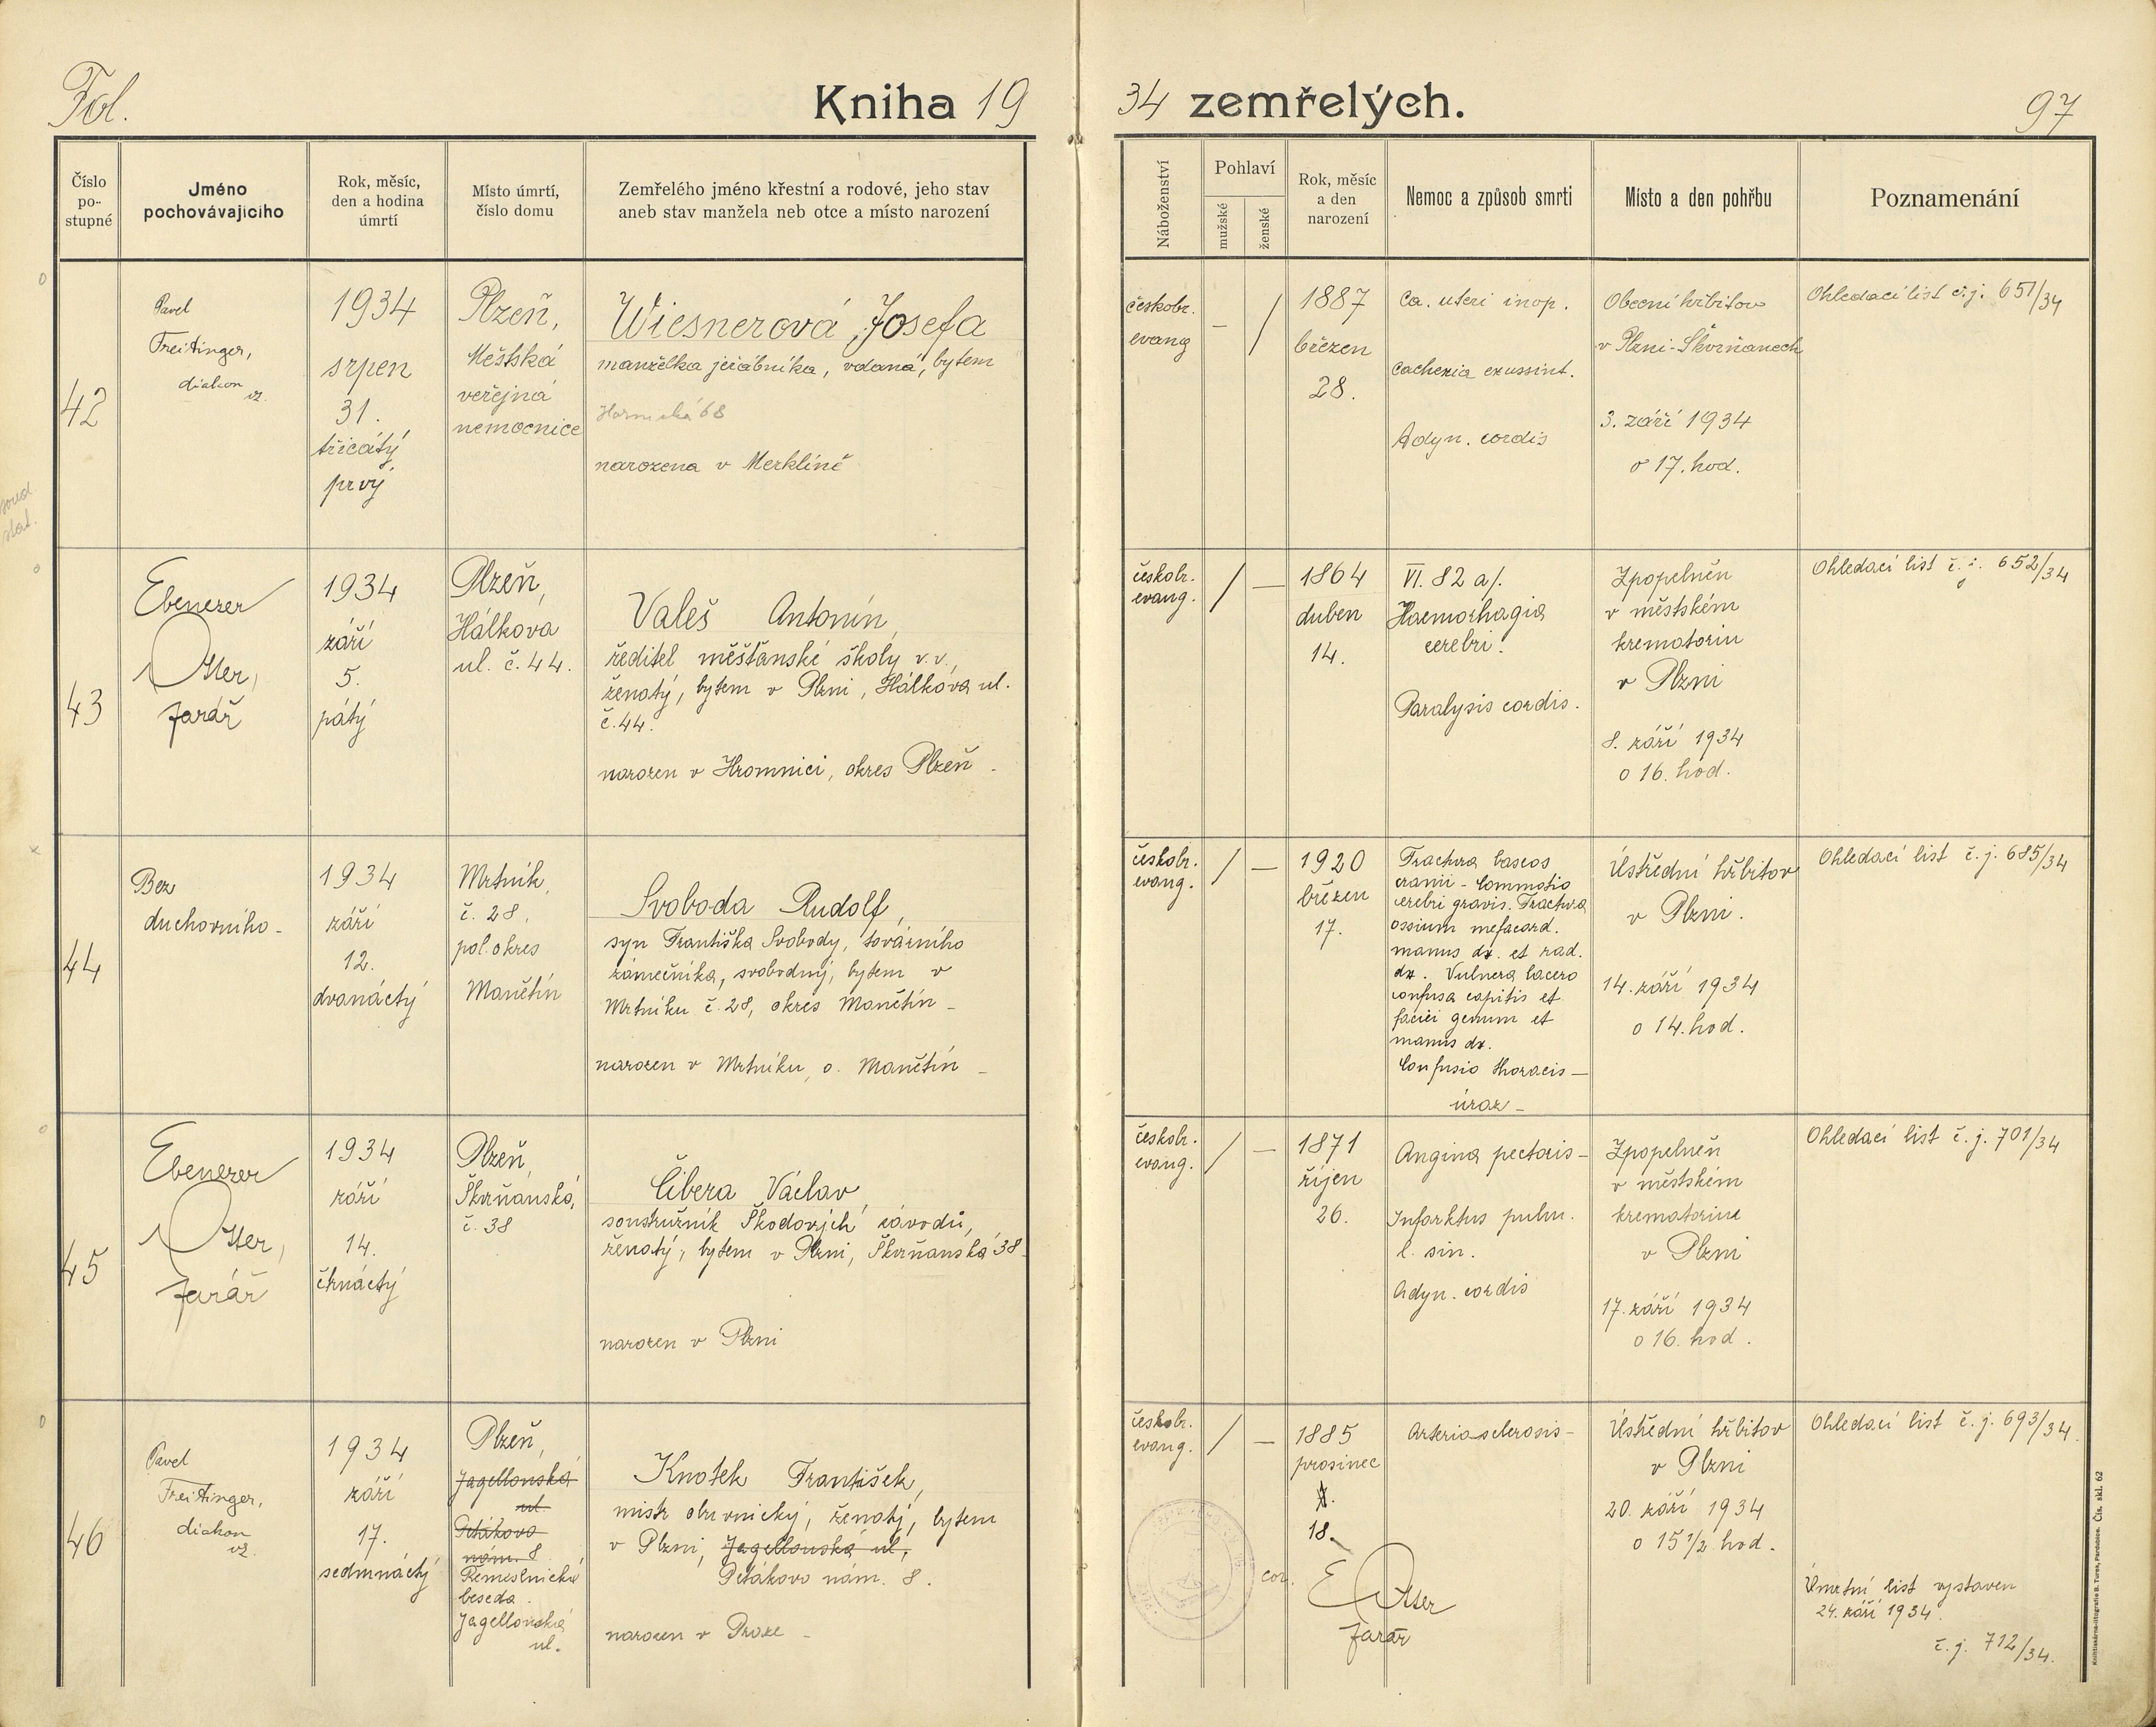 Fol.
Kniha 19
34 zemřelých.
97
Číslo po-stupné
Jméno pochovávajícího
Rok, měsíc, den a hodina úmrtí
Místo úmrtí, číslo domu
Zemřelého jméno křestní a rodové, jeho stav
aneb stav manžela neb otce a místo narození
Náboženství
Pohlaví
mužské
ženské
Rok, měsíc a den narození
Nemoc a způsob smrti
Místo a den pohřbu
Poznamenání
42
Pavel
Freitinger,
diakon
vz.
1934
srpen
31.
třicátý
prvý
Plzeň,
Městská
veřejná
nemocnice
Wiesnerová Josefa
manželka jeřábníka, vdaná, bytem
Hornická 68
narozena v Merklíně
českobr.
evang
—
/
1887
březen
28.
Ca. uteri inop.
cachexia exussint.
Adyn. cordis
Obecní hřbitov
v Plzni-Škvrňanech
3. září 1934
o 17. hod.
Ohledací list č.j. 651/34
43
Ebenezer
Otter,
farář
1934
září
5.
pátý
Plzeň,
Hálkova
ul. č. 44.
Valeš Antonín,
ředitel měšťanské školy v.v.,
ženatý, bytem v Plzni, Hálkova ul.
č.44.
narozen v Hromnici, okres Plzeň.
českobr.
evang.
/
—
1864
duben
14.
VI. 82 a/.
Haemorhagia
cerebri.
Paralysis cordis.
Zpopelněn
v městském
krematoriu
v Plzni
8. září 1934
o 16. hod.
Ohledací list č. j. 652/34
44
Bez
duchovního-
1934
září
12.
dvanáctý
Mrtník,
č. 28,
pol. okres
Manětín
Svoboda Rudolf,
syn Františka Svobody, továrního
zámečníka, svobodný, bytem v
Mrtníku č. 28, okres Manětín-
narozen v Mrtníku, o. Manětín-
českobr.
evang.
/
—
1920
březen
17.
Fractura baseos
cranii - Commotio
cerebri gravis. Fractura
ossium metacard.
manus dx. et rad.
dx. Vulnera lacero
confusa capitis et
faciei genum et
manus dx.
Confusio thoracis—
úraz-
Ústřední hřbitov
v Plzni.
14. září 1934
o 14. hod.
Ohledací list č. j. 685/34
45
Ebenezer
Otter,
farář
1934
září
14.
čtrnáctý
Plzeň,
Škvrňanská,
č. 38
Čibera Václav
soustružník Škodových závodů,
ženatý, bytem v Plzni, Škvrňanská 38-
narozen v Plzni
českobr.
evang.
/
—
1871
říjen
26.
Angina pectoris-
Infarktus pulm.
l. sin.
Adyn. cordis
Zpopelněn
v městském
krematoriu
v Plzni
17. září 1934
o 16. hod.
Ohledací list č. j. 701/34
46
Pavel
Freitinger,
diakon
vz.
1934
září
17.
sedmnáctý
Plzeň,
Jagellonská
ul.
Petákovo
nám. 8
Řemeslnická
beseda.
Jagellonská
ul.
Knotek František,
mistr obuvnický, ženatý, bytem
v Plzni, Jagellonská ul,
Petákovo nám. 8.
narozen v Praze-
českobr.
evang.
/
—
1885
prosinec
18.
cor.
E Otter
farář
Arteriosclerosis-
Ústřední hřbitov
v Plzni
20. září 1934
o 15 1/2 hod.
Ohledací list č. j. 693/34.
Úmrtní list vystaven
24. září 1934.
č. j. 712/34.